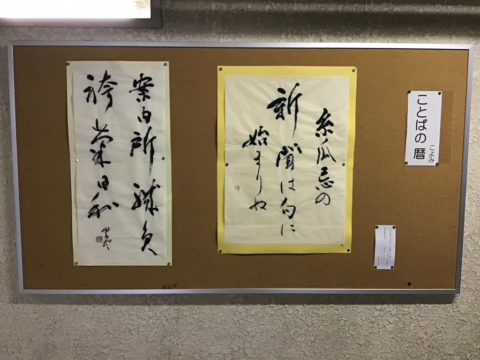 ことばの暦
こよみ
糸瓜忌の
新聞は句に
始まりぬ
案内所職員
袴菊日和